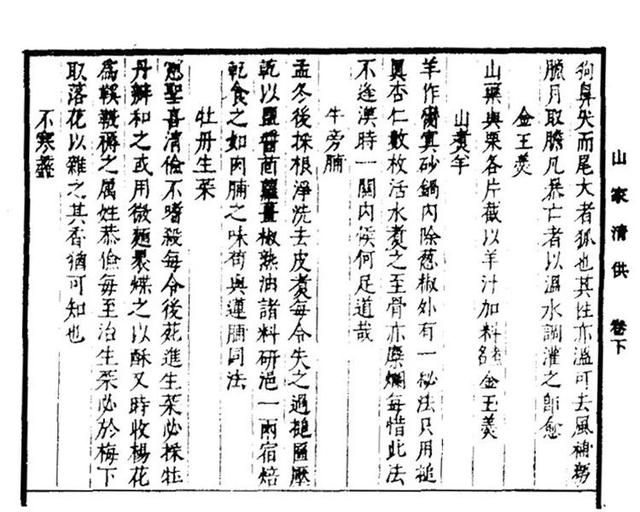 山家清供 卷下
狗鼻尖而尾大者狐也其性亦溫可去風補勞
臘月取膽凡暴亡者以溫水調灌之卽愈
金王羹
山藥與栗各片截以羊汁加料金王羹
山煮羊
羊作臠寘砂鍋內除葱椒外有一秘法只用搥
眞杏仁數枚活水煮之至骨亦糜爛每惜此法
不逢漢時一關內候何足道哉
牛旁脯
孟冬後採根淨洗去皮煮每令失之過搥匾壓
乾以鹽醬茴蘿薑椒熟油諸料研浥一兩宿焙
乾食之如肉脯之味荀與蓮脯同法
牡丹生菜
憲聖喜清儉不嗜殺每令後苑進生菜必採牡
丹瓣和之或用微麵裹煠之以酥又時收楊花
爲鞋韈褥之属姓恭儉每至治生菜必於梅下
取落花以雜之其香猶可知也
不寒虀